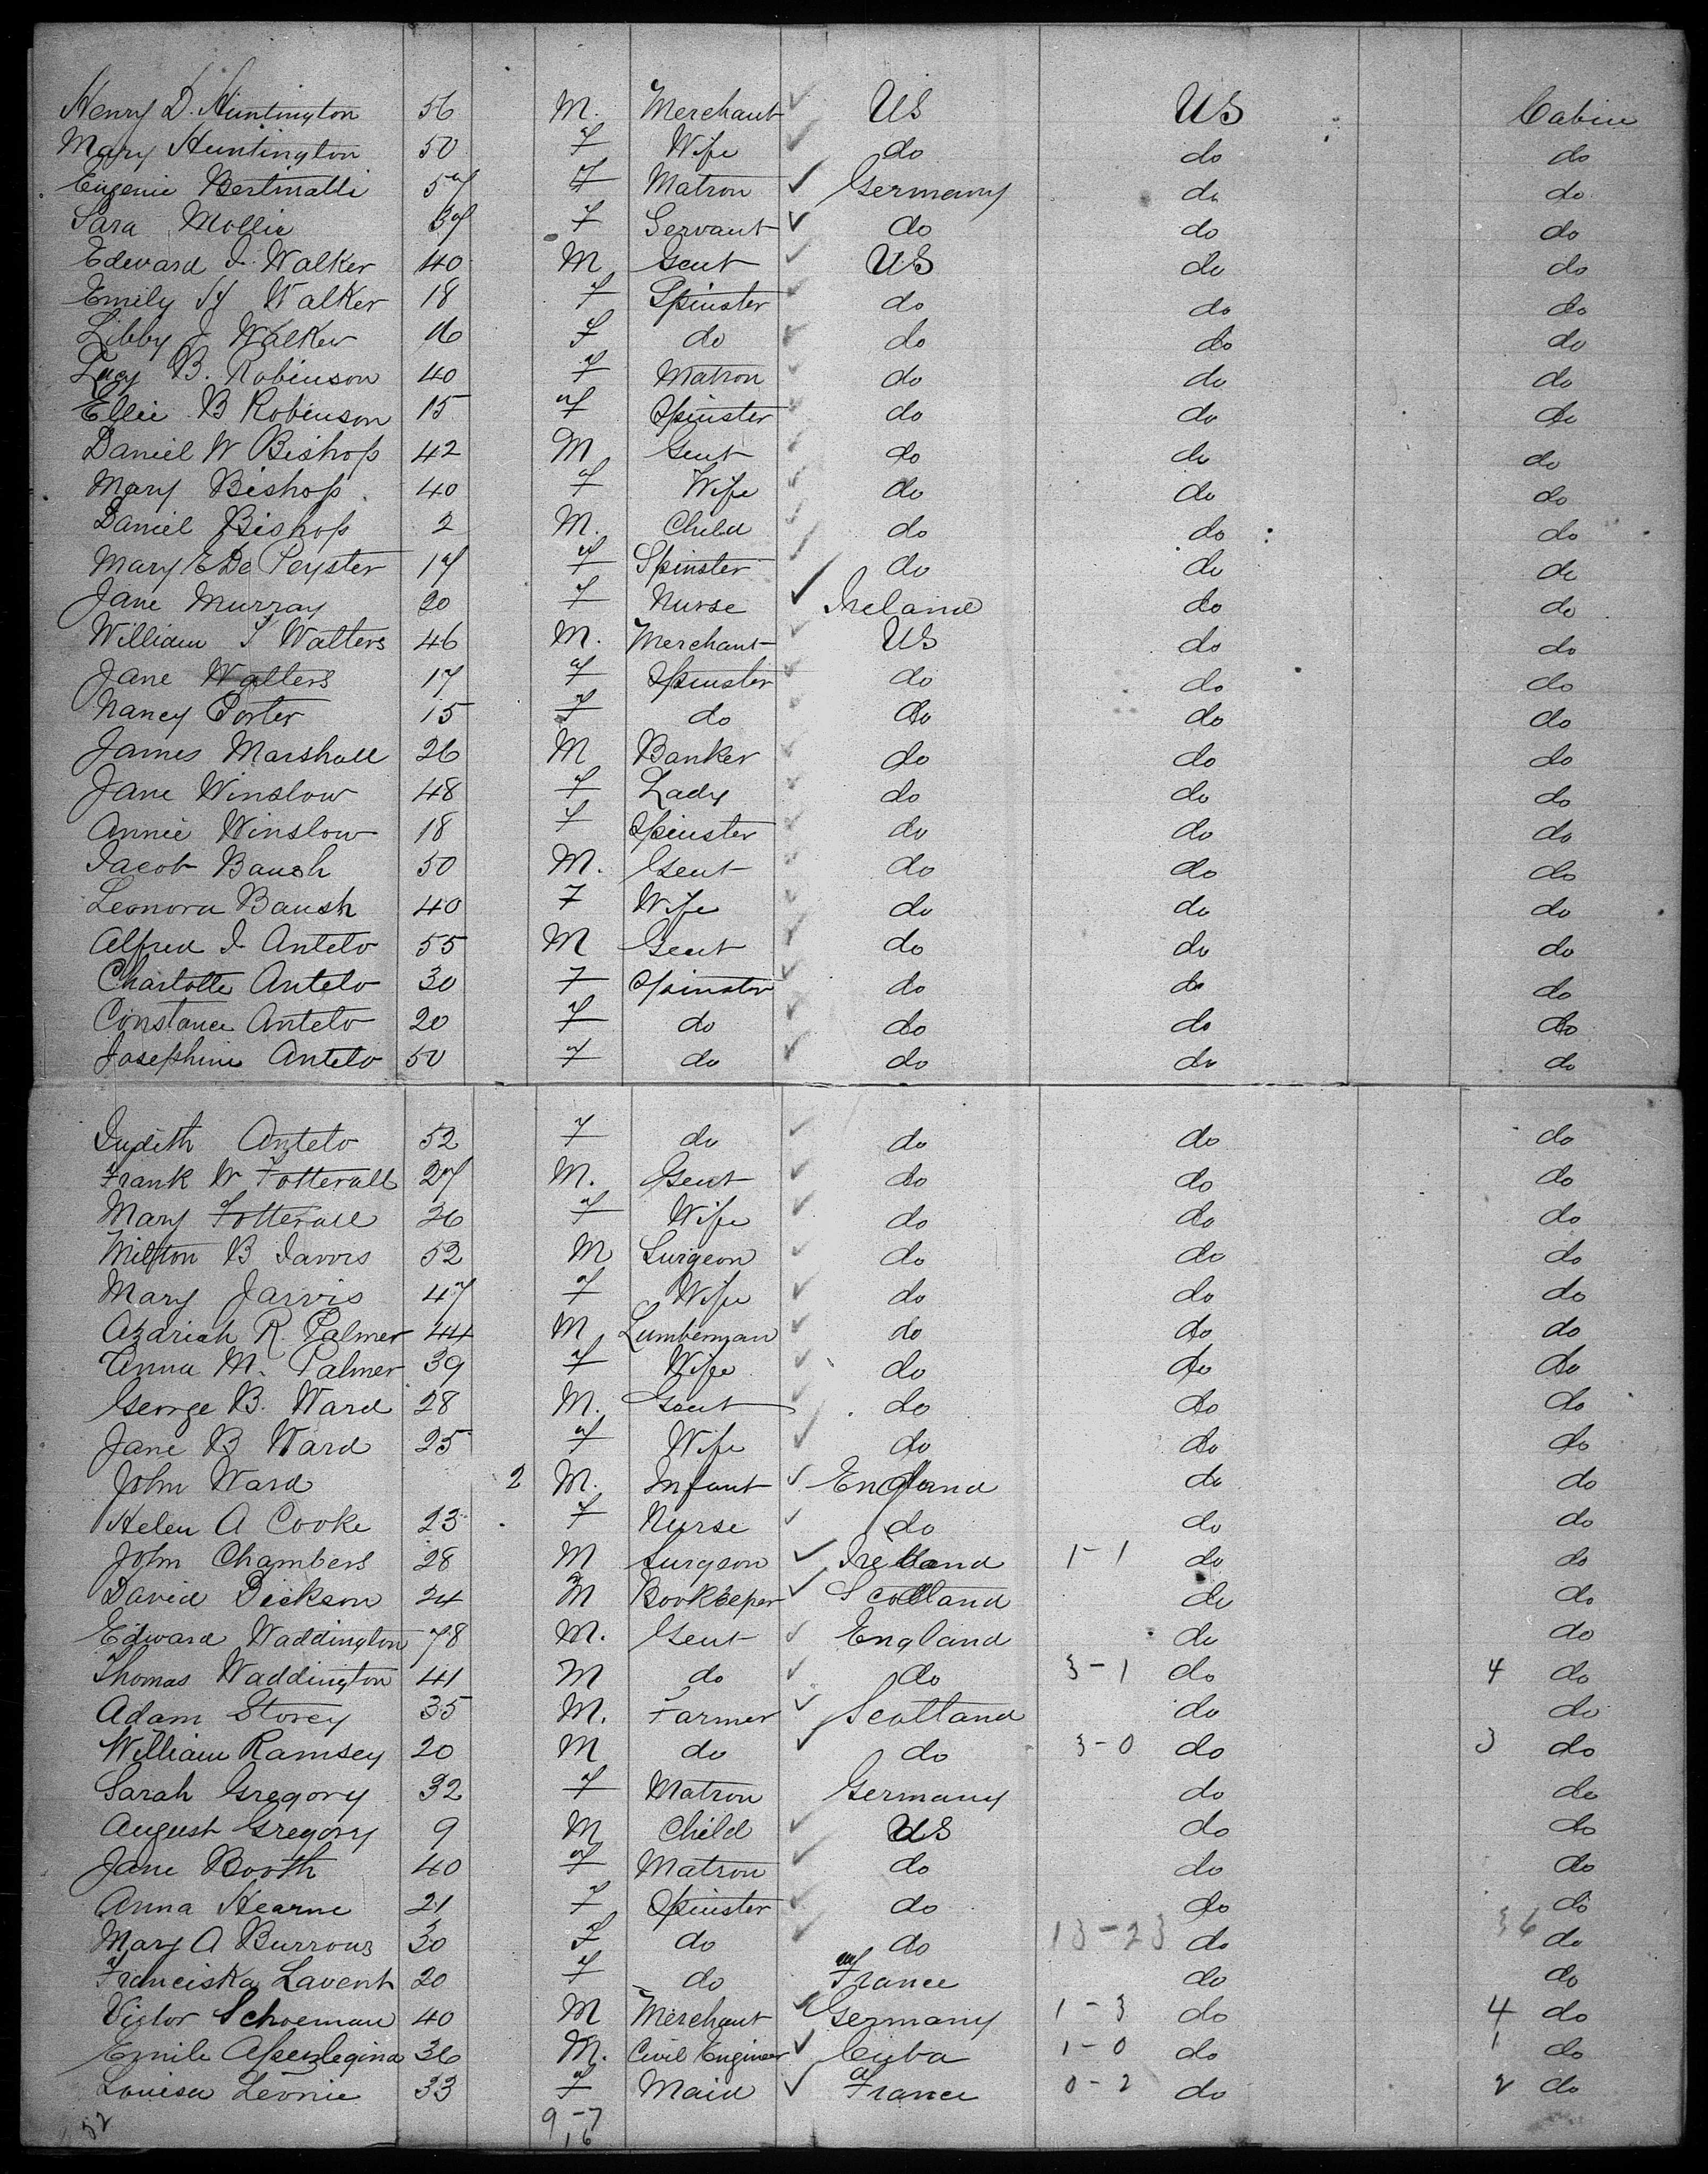 Henry D. Huntington 56 M. Merchant US US Cabin
Mary Huntington 50 F Wife do do do
Eugenie Bertinatti 57 F Matron Germany do do
Sara Mollie 37 F Servant do do do
Edward I. Walker 40 M Gent US do do
Emily H Walker 18 F Spinster do do do
Libby J Walker 16 F do do do do
Lucy B. Robinson 40 F Matron do do do
Ellie B Robinson 15 F Spinster do do do
Daniel W Bishop 42 M Gent do do do
Mary Bishop 40 F Wife do do do
Daniel Bishop 2 M. Child do do do
Mary E De Peyster 17 F Spinster do do do
Jane Murray 20 F Nurse Ireland do do
William T Walters 46 M. Merchant US do do
Jane Walters 17 F Spinster do do do
Nancy Porter 15 F do do do do
James Marshall 26 M Banker do do do
Jane Winslow 48 F Lady do do do
Annie Winslow 18 F Spinster do do do
Jacob Baush 50 M. Gent do do do
Leonora Baush 40 F Wife do do do
Alfred I Antelo 55 M Gent do do do
Charlotte Antelo 30 F Spinster do do do
Constance Antelo 20 F do do do do
Josephine Antelo 50 F do do do do
Judith Antelo 52 F do do do do
Frank W Fotterall 27 M. Gent do do do
Mary Fotterall 26 F Wife do do do
Milton B Jarvis 52 M Surgeon do do do
Mary Jarvis 47 F Wife do do do
Azariah R. Palmer 44 M Lumberman do do do
Anna M. Palmer 39 F Wife do do do
George B. Ward 28 M. Gent do do do
Jane B Ward 25 F Wife do do do
John Ward 2 M. Infant England do do
Helen A Cooke 23 F Nurse do do do
John Chambers 28 M Surgeon Ireland 1-1 do do
David Dickson 24 M Bookkeeper Scotland do do
Edward Waddington 78 M. Gent England do do
Thomas Waddington 41 M do do 3-1 do 4 do
Adam Storey 35 M. Farmer Scotland do do
William Ramsey 20 M do do 3-0 do 3 do
Sarah Gregory 32 F Matron Germany do do
August Gregory 9 M Child US do do
Jane Booth 40 F Matron do do do
Anna Hearne 21 F Spinster do do do
Mary A Burrows 30 F do do 13-23 do 36 do
Franciska Lavent 20 F do France do do
Victor Schoeman 40 M Merchant Germany 1-3 do 4 do
Emile 36 M. Civil Engineer Cuba 1-0 do 1 do
Louisa Leonie 33 F Maid France 0-2 do 2 do
52 9-7
16